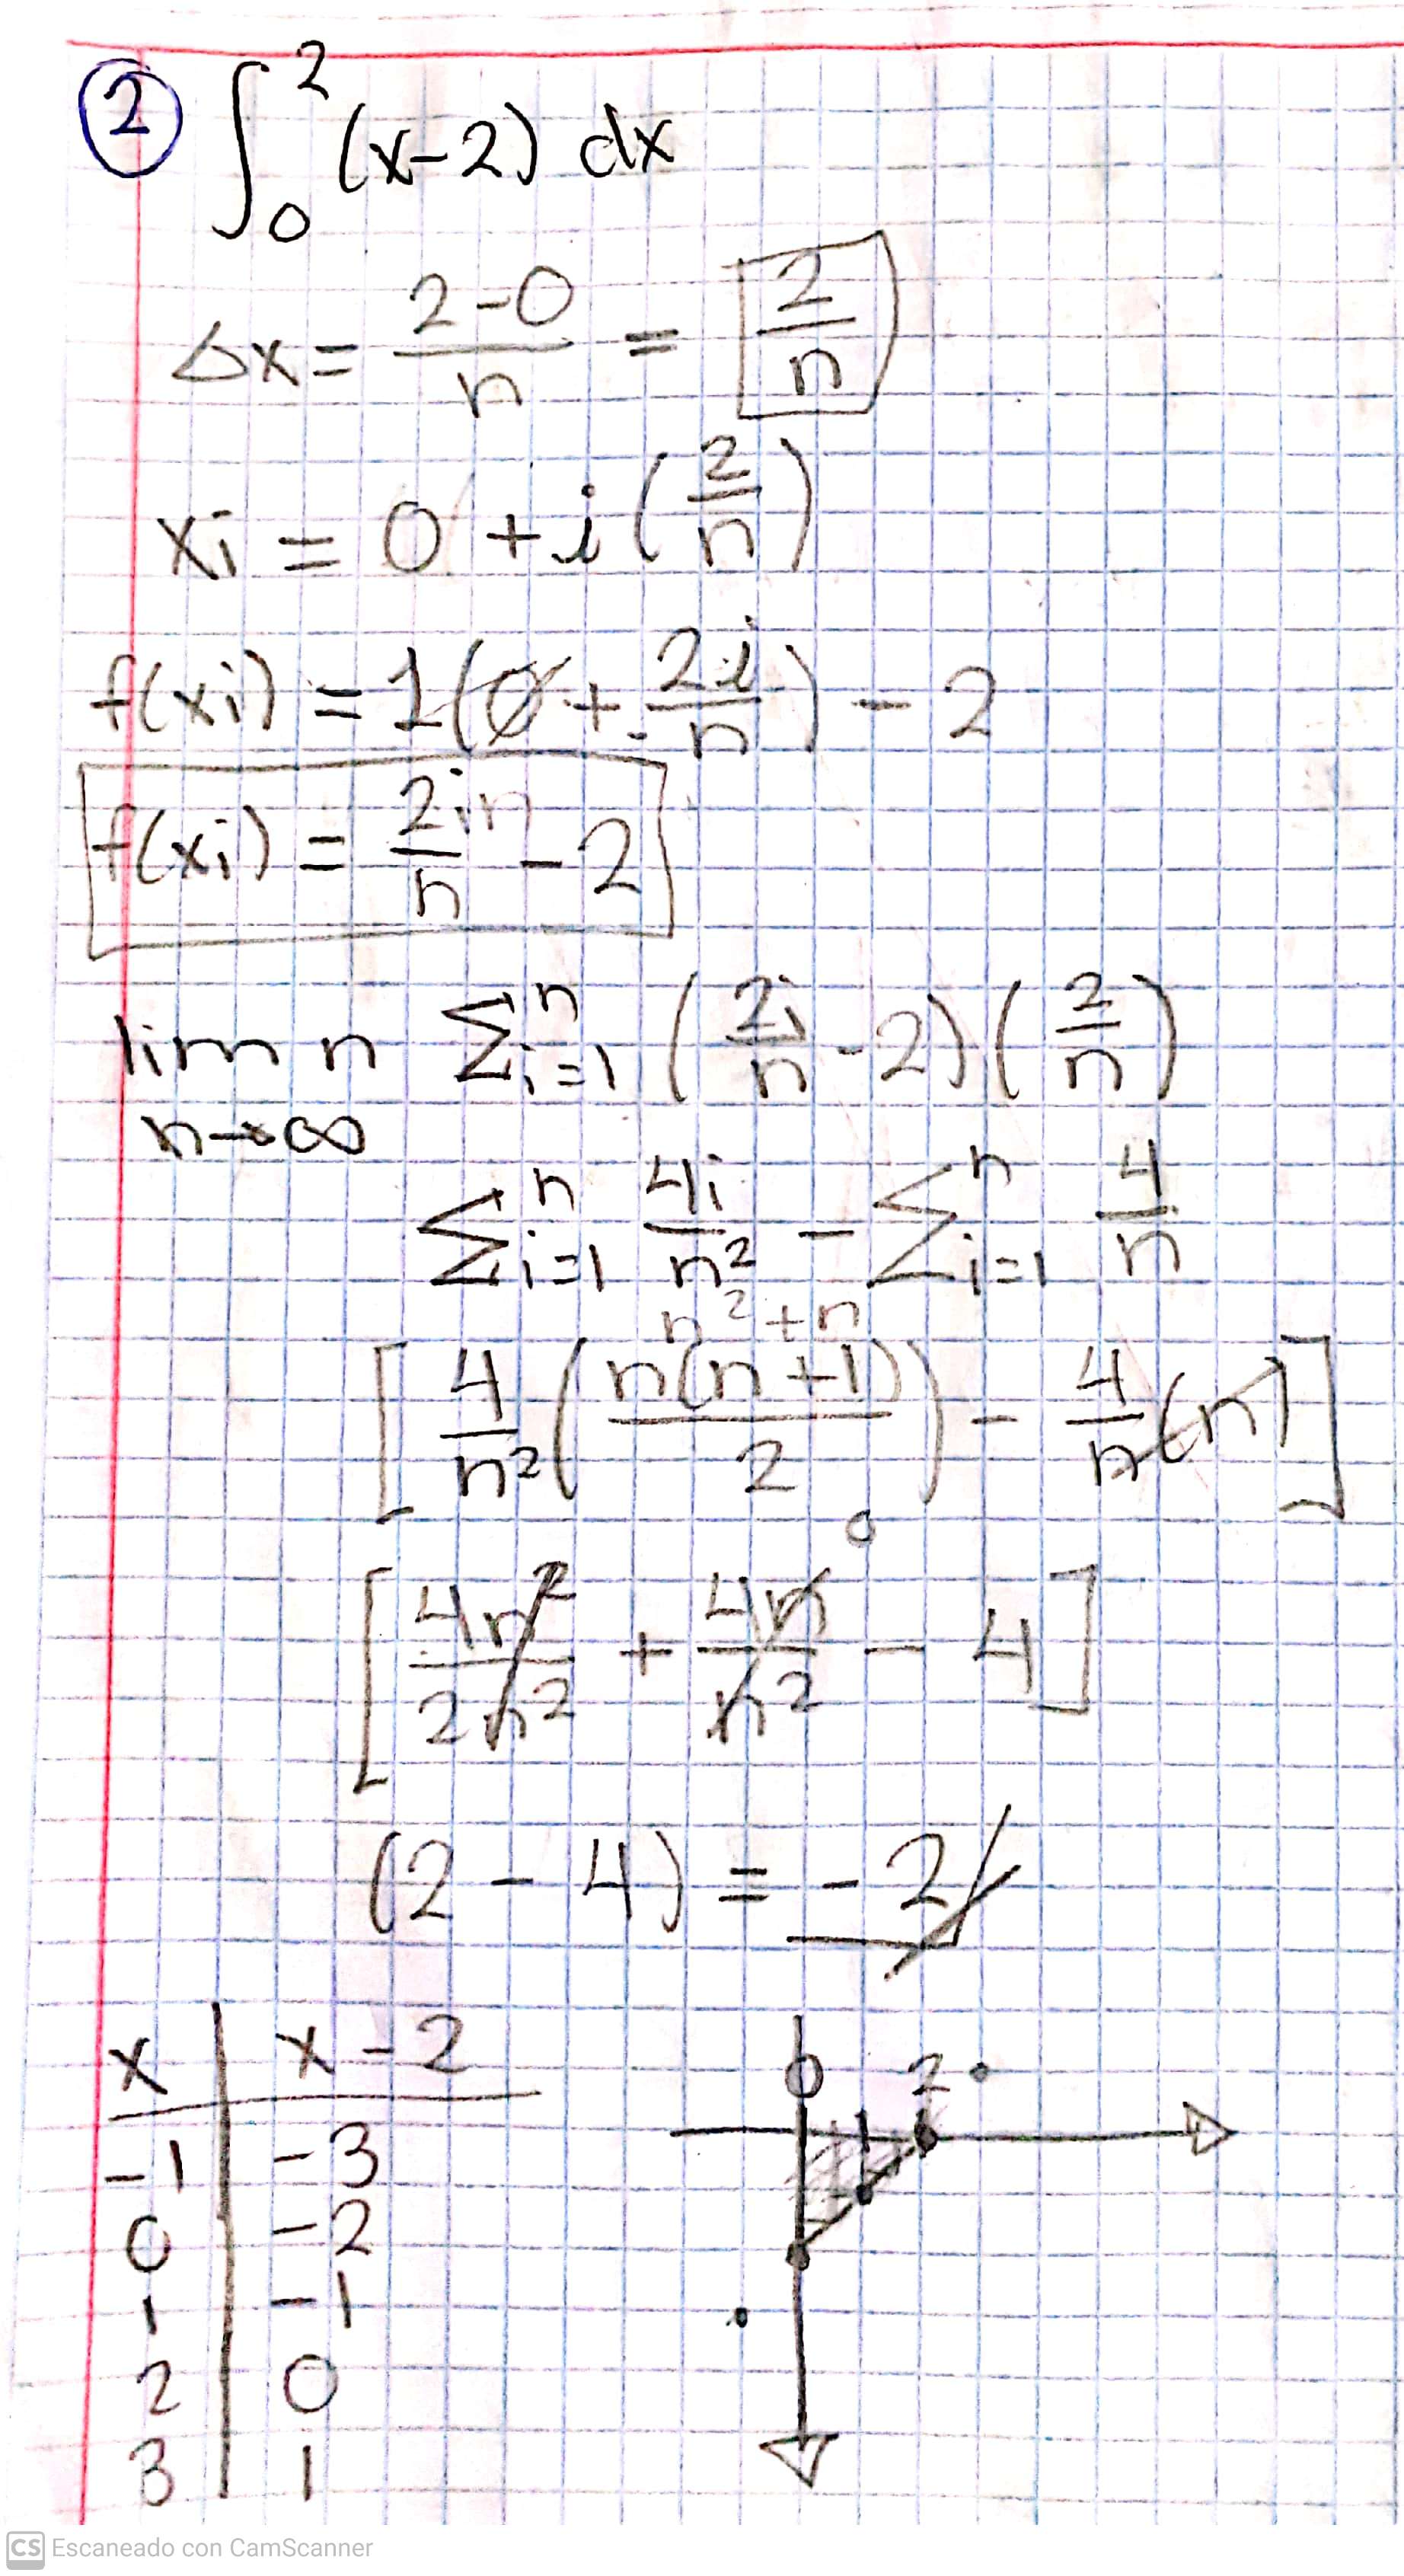 ② ∫₀² (x-2) dx
Δx = (2-0)/n = 2/n
xi = 0 + i (2/n)
f(xi) = 1(0 + 2i/n) - 2
f(xi) = 2in/n - 2
lim n Σⁿi=1 (2i/n - 2)(2/n)
n→∞
Σⁿi=1 4i/n² - Σⁿi=1 4/n
n²+n
[4/n² (n(n+1)/2) - 4/n (n)]
0
[4n²/2n² + 4n/n² - 4]
(2 - 4) = -2
x | x - 2
-1 | -3
0 | -2
1 | -1
2 | 0
3 | 1
0 2
CS Escaneado con CamScanner